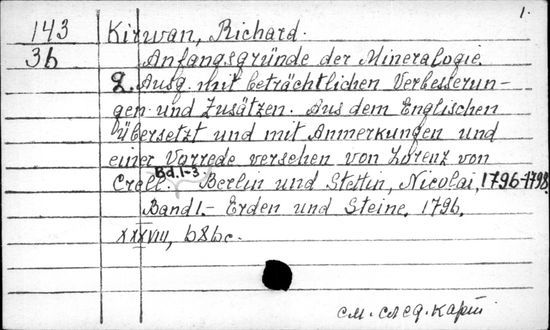 1.
143 Kirwan, Richard.
36 Anfangsgründe der Mineralogie.
2. Ausg. mit beträchtlichen Verbesserun-
gen und Zusätzen. Aus dem Englischen
übersetzt und mit Anmerkungen und
einer Vorrede versehen von Lorenz von
Crell. Bd.1-3 Berlin und Stettin, Nicolai, 1796-1798.
Band 1.- Erden und Steine. 1796.
XXXVIII, 686c.
см. след. карт